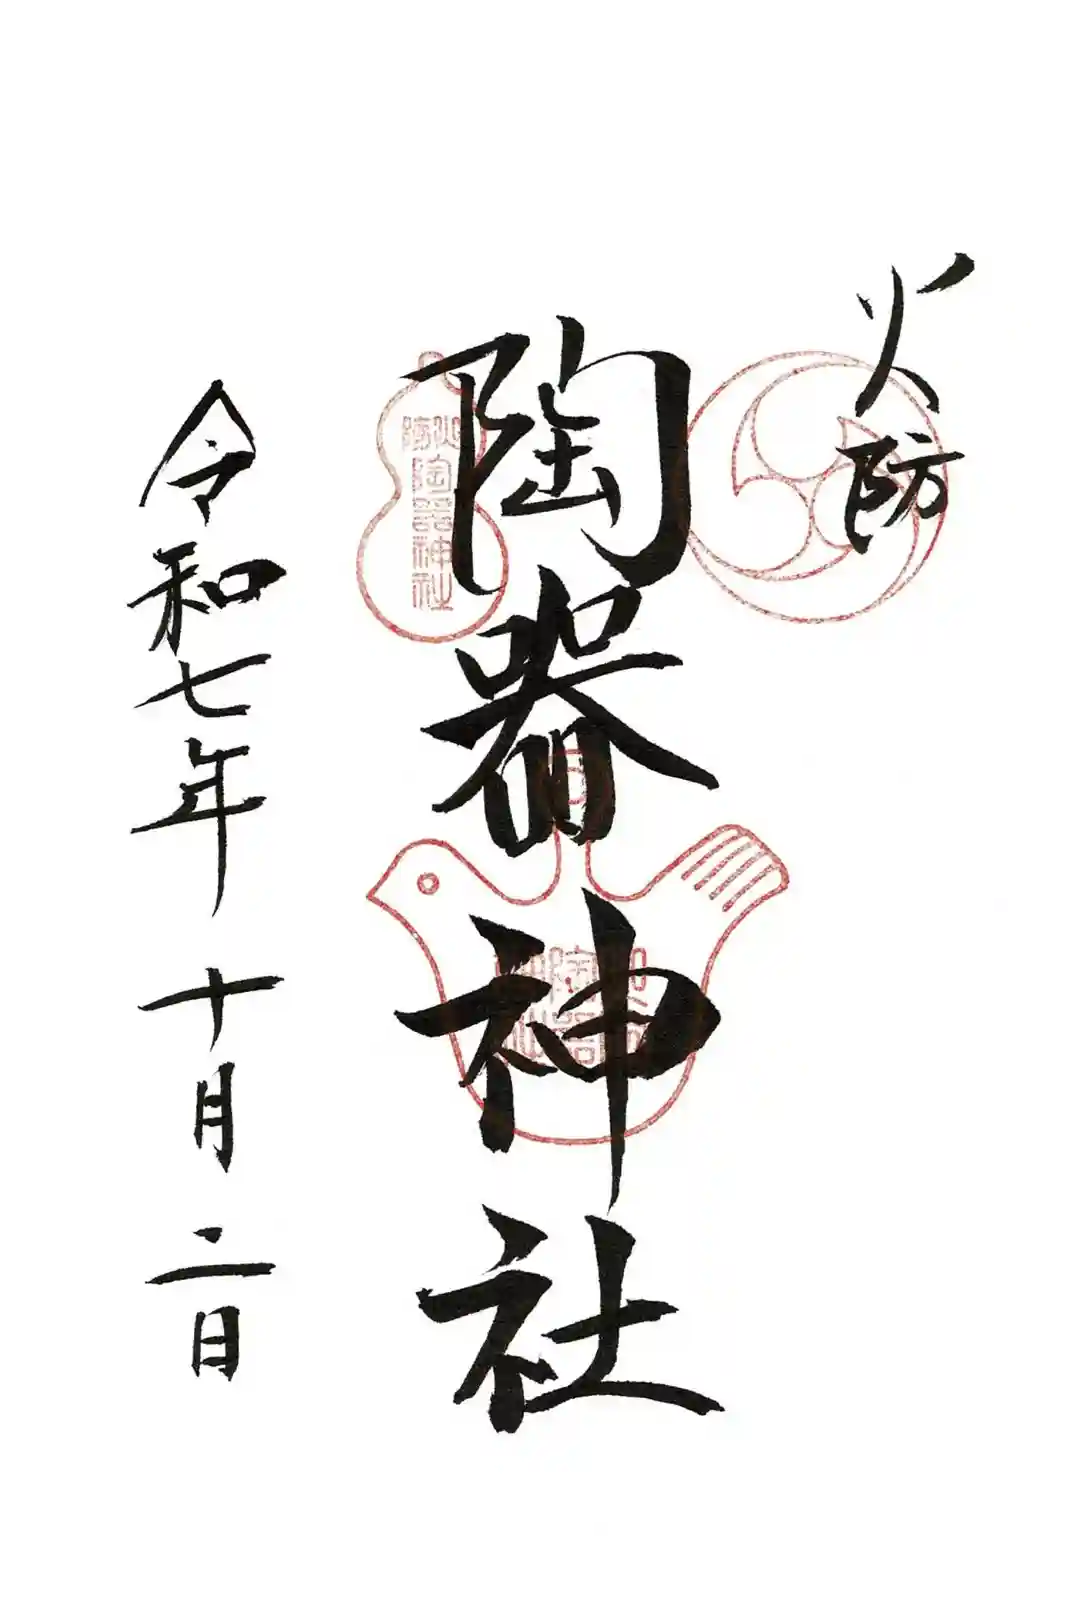 火防
陶器神社
令和七年 十月二日
火防
陶器神社